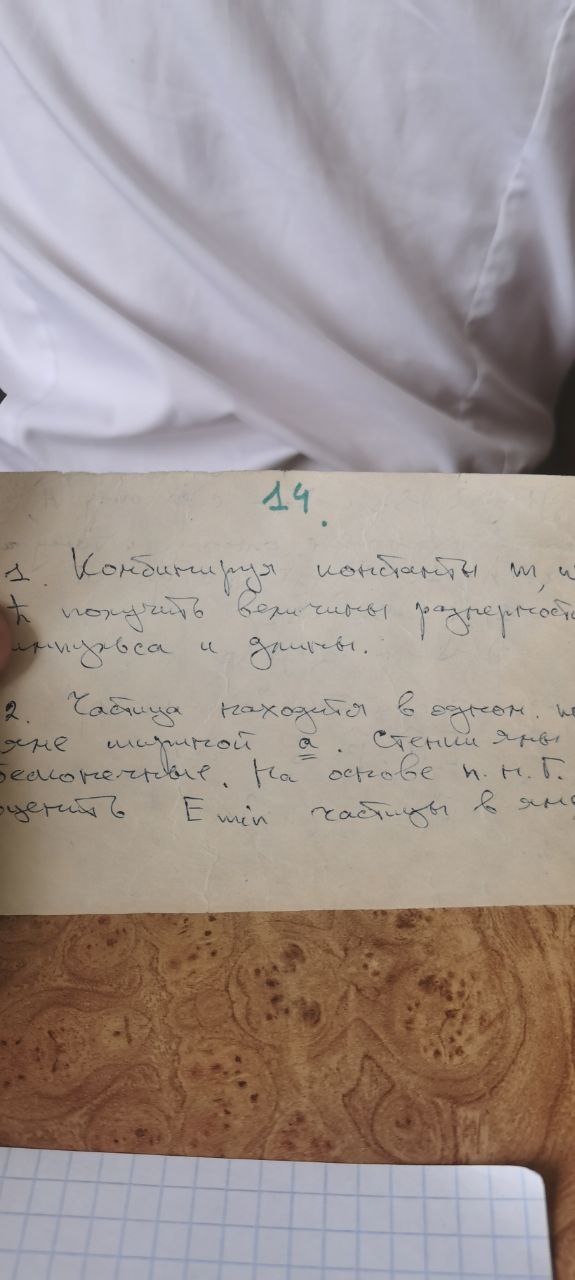 14.
1. Комбинируя константы m,
ħ получить величины размерности
импульса и длины.
2. Частица находится в одном.
яме шириной a. Стенки ямы
бесконечные. На основе п.н.Г.
оценить E min частицы в яме